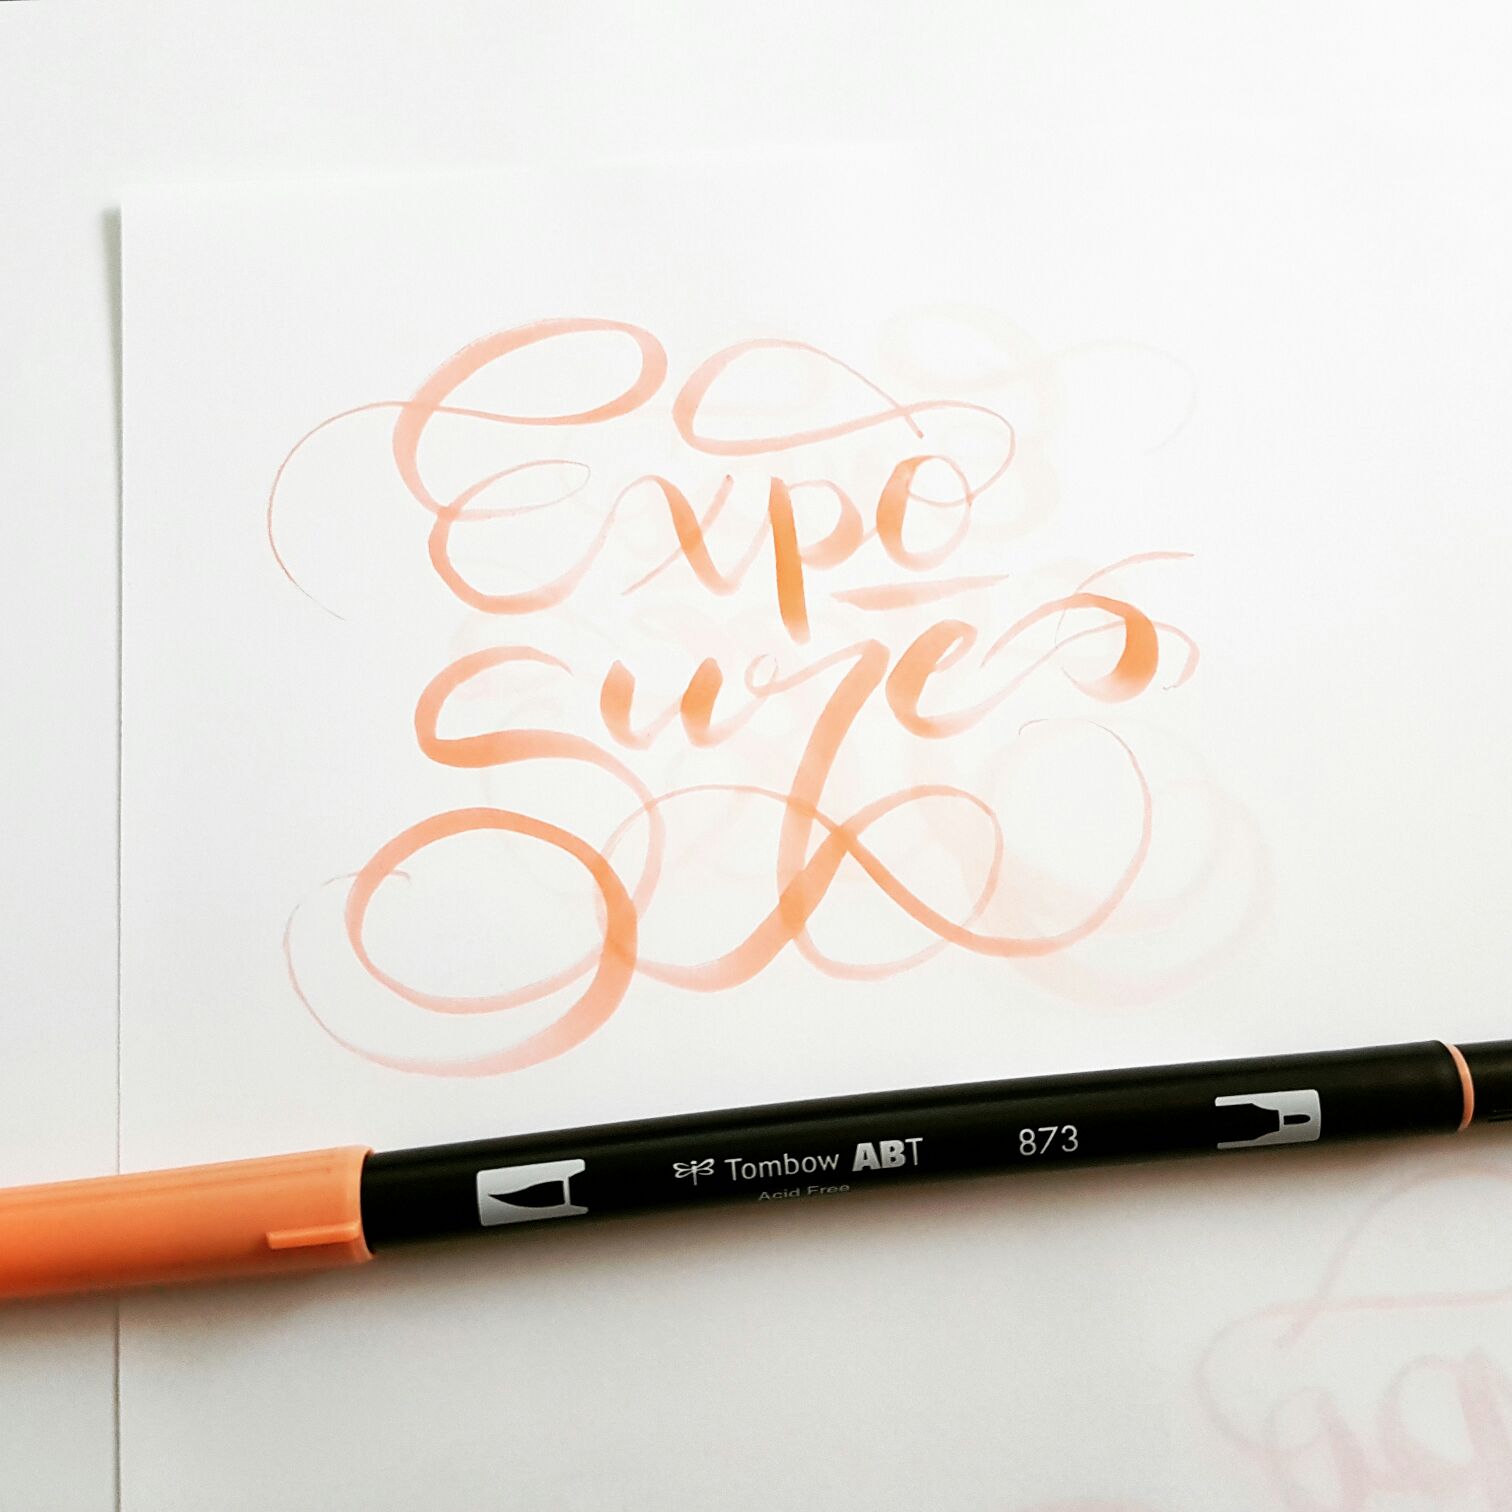 Expo
sures
Tombow ABT 873
Acid Free